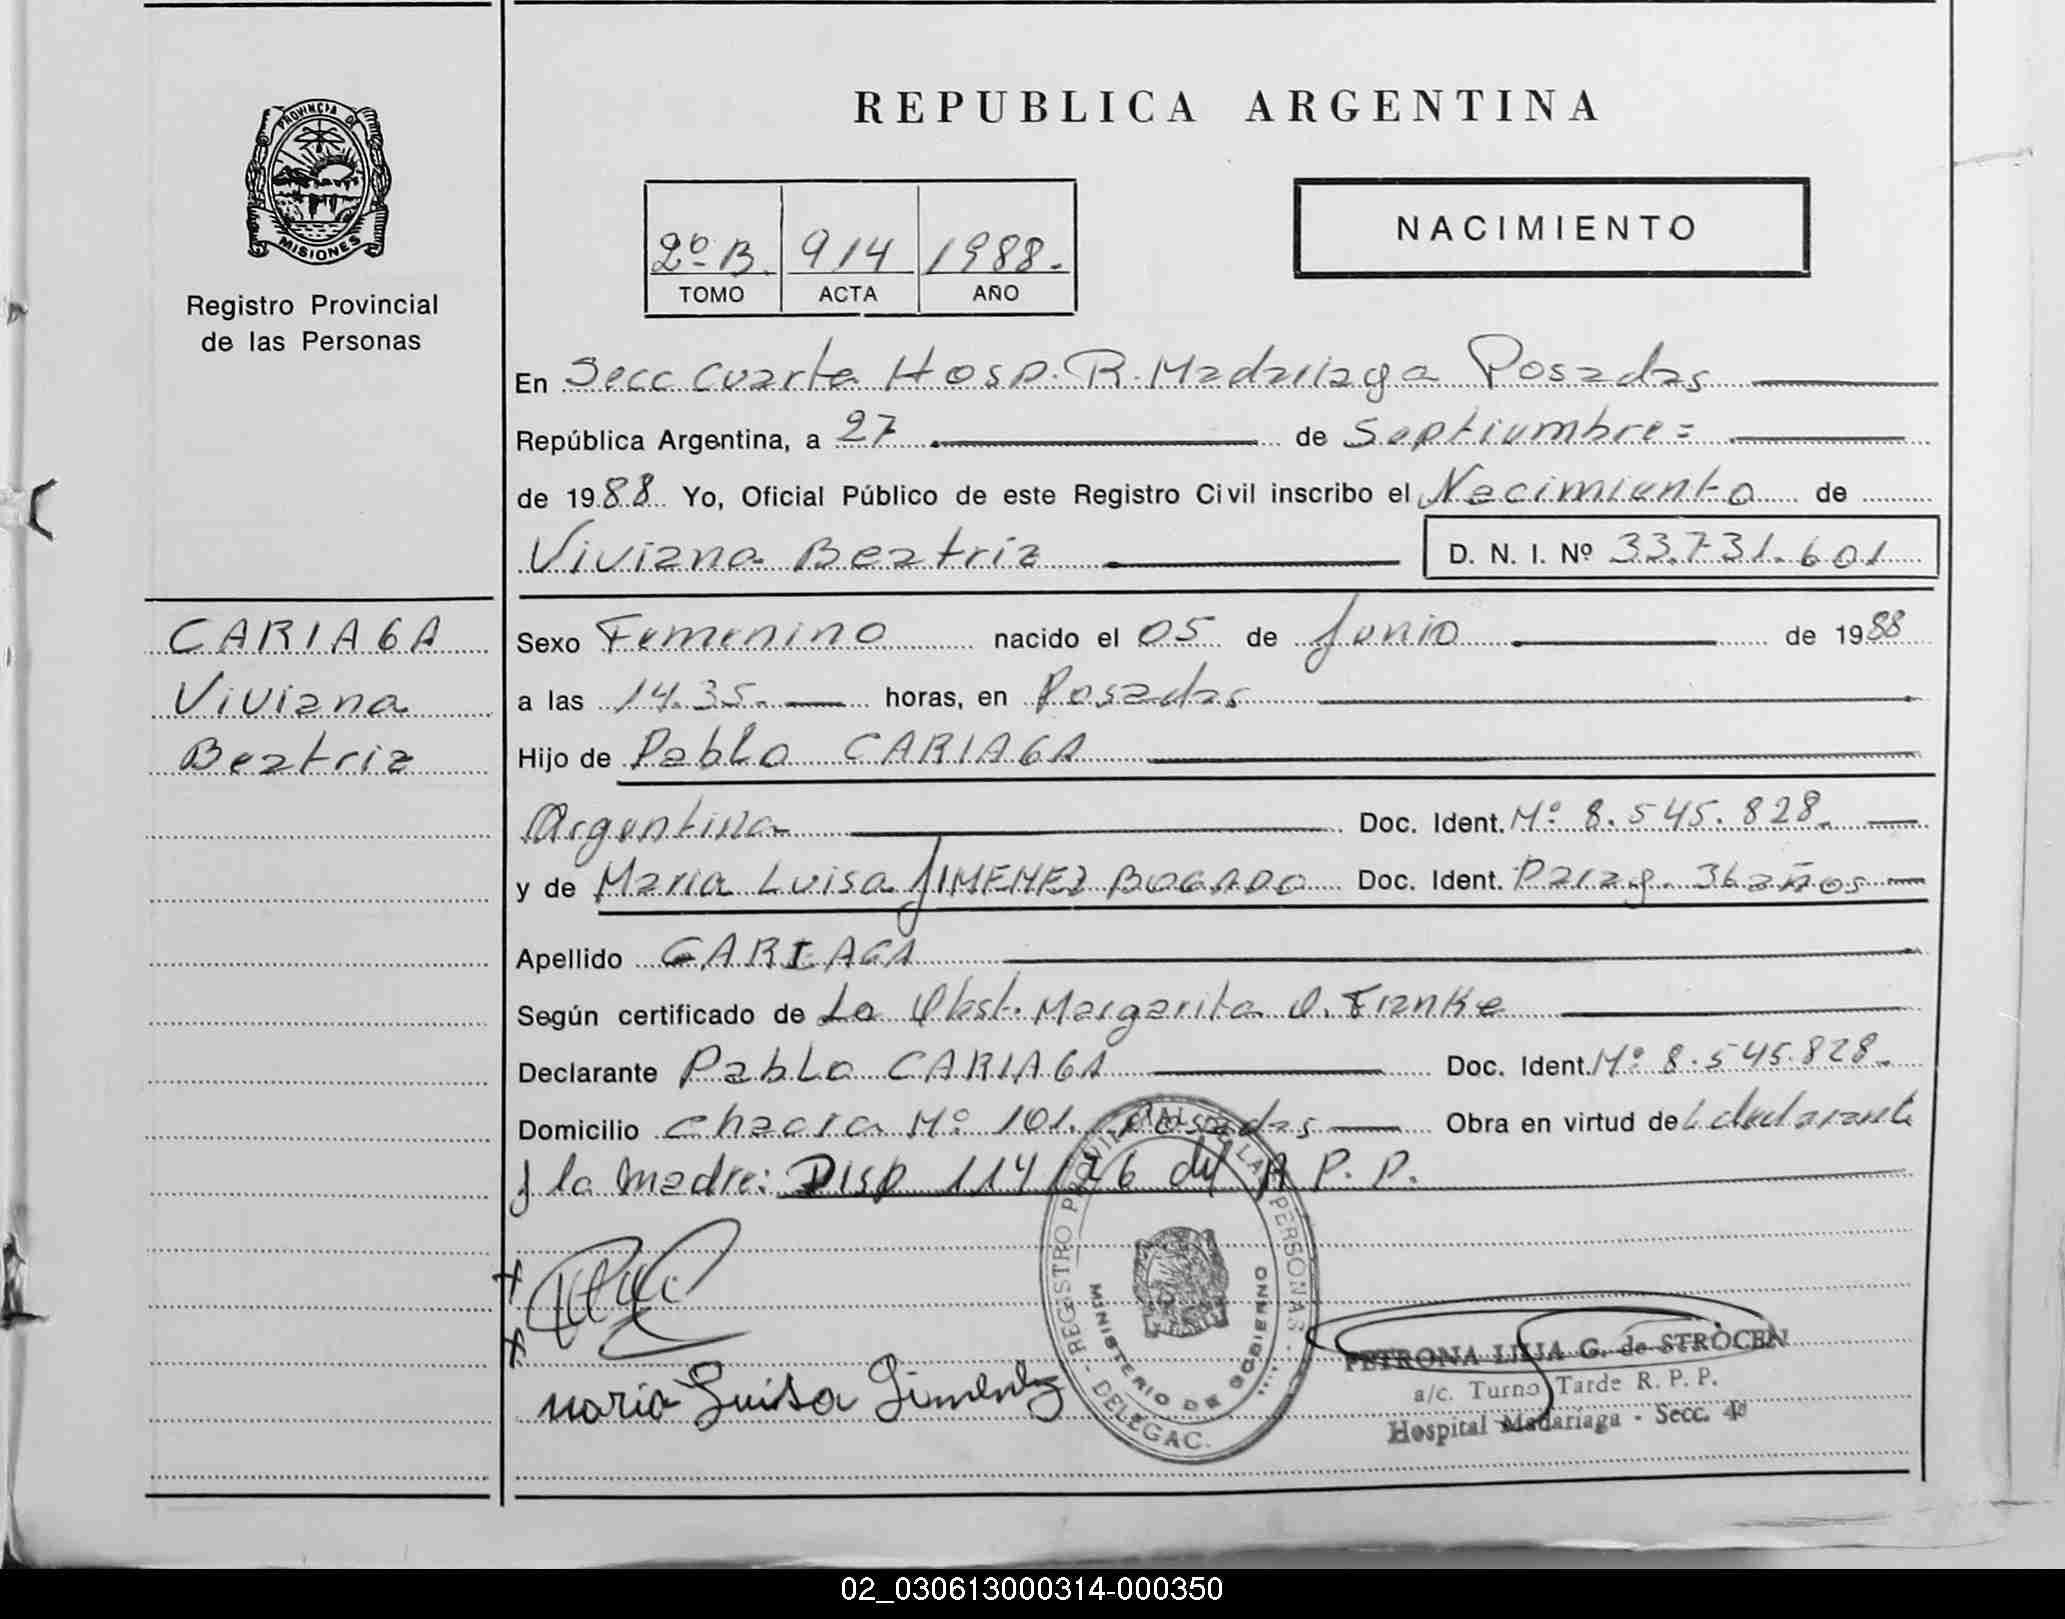 REPUBLICA ARGENTINA
PROVINCIA DE
MISIONES
Registro Provincial
de las Personas
2º B. 914 1988.
TOMO ACTA AÑO
NACIMIENTO
En Secc Cuarta Hosp. R. Madariaga Posadas
República Argentina, a 27 de Septiembre=
de 1988 Yo, Oficial Público de este Registro Civil inscribo el Nacimiento de
Viviana Beatriz D. N. I. Nº 33.731.601
CARIAGA
Viviana
Beatriz
Sexo Femenino nacido el 05 de Junio de 1988
a las 14.35. horas, en Posadas
Hijo de Pablo CARIAGA
Argentina Doc. Ident. Nº 8.545.828.
y de Maria Luisa JIMENEZ BOGADO Doc. Ident. Parag. 36 años
Apellido CARIAGA
Según certificado de La Obst. Margarita O. Franke
Declarante Pablo CARIAGA Doc. Ident. Nº 8.545.828.
Domicilio chacra Nº 101. Posadas Obra en virtud de L declarante
y la madre: Disp 114/26 del P. P.
Maria Luisa Gimenez
REGISTRO PROVINCIAL DE LAS PERSONAS - DELEGAC.
MINISTERIO DE GOBIERNO
PETRONA LILIA G. de STROCEN
a/c. Turno Tarde R. P. P.
Hospital Madariaga - Secc. 4º
02_030613000314-000350